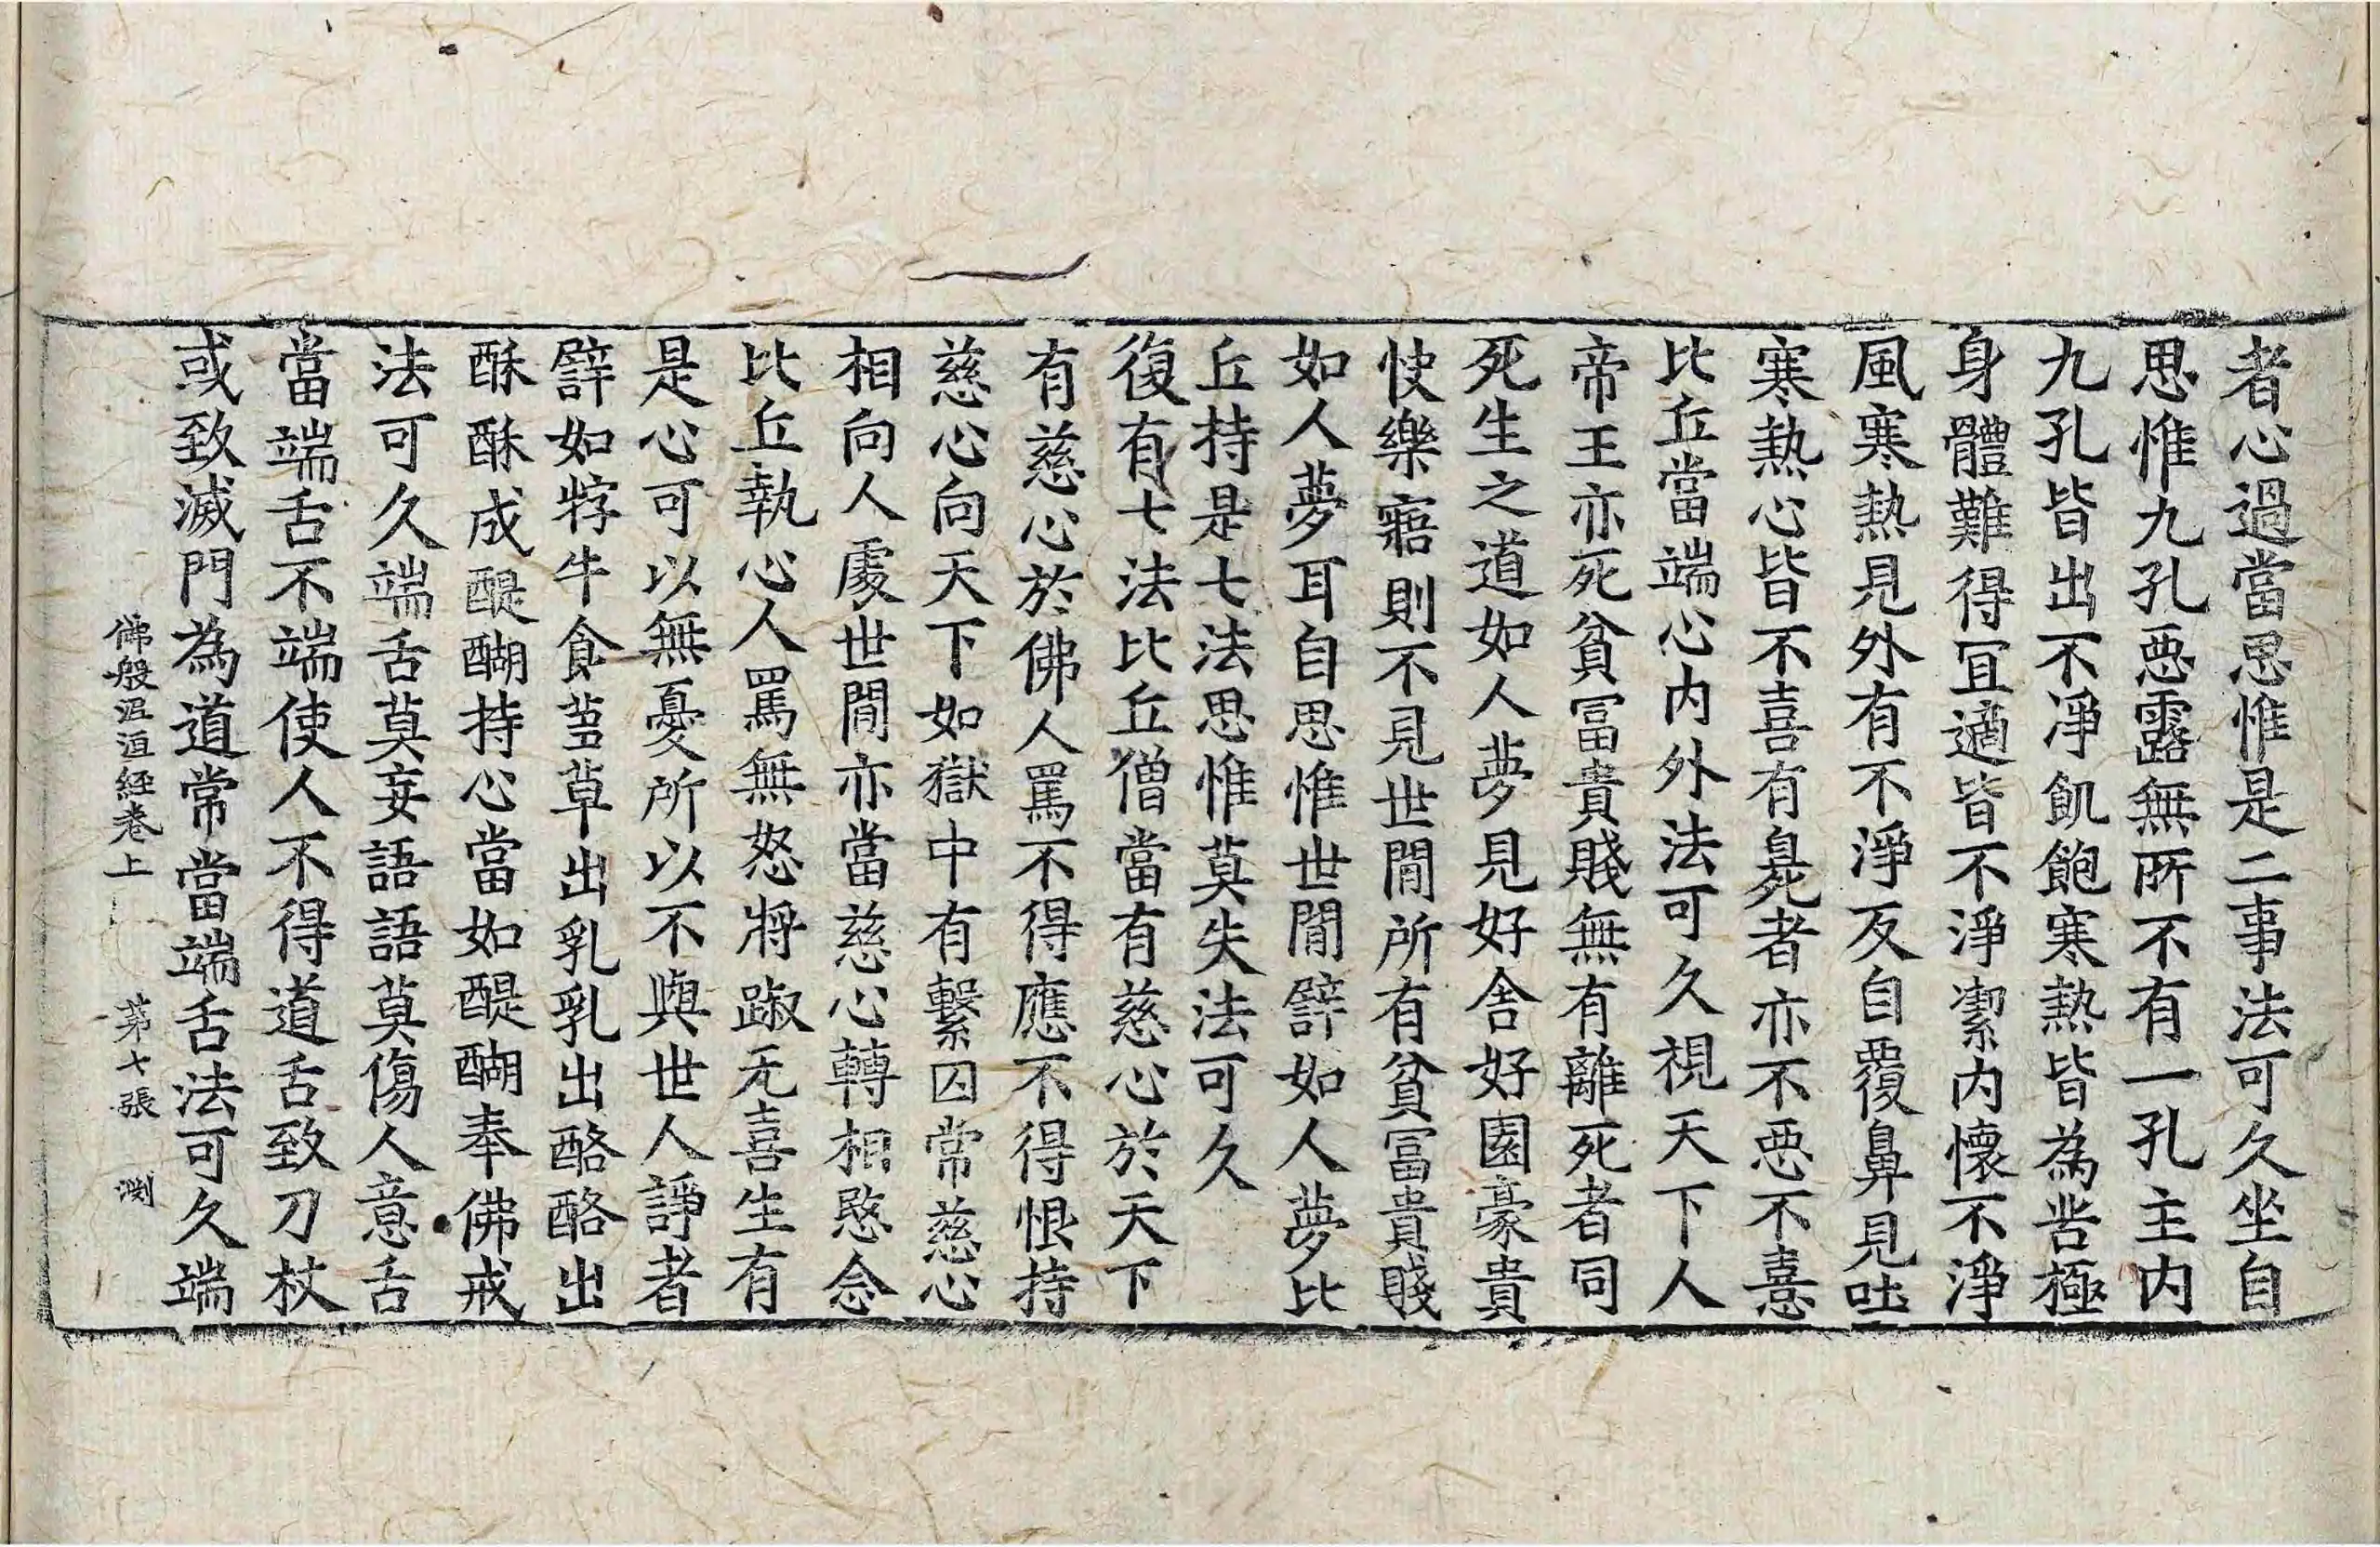 者心過當思惟是二事法可久坐自
思惟九孔惡露無所不有一孔主内
九孔皆出不淨飢飽寒熱皆為苦極
身體難得冝適皆不淨潔内懷不淨
風寒熱見外有不淨反自覆鼻見吐
寒熱心皆不喜有臰死者亦不惡不憙
比丘當端心内外法可久視天下人
帝王亦死貧冨貴賤無有離死者同
死生之道如人夢見好舍好園豪貴
快樂寤則不見世間所有貧冨貴賤
如人夢耳自思惟世間譬如人夢比
丘持是七法思惟莫失法可久
復有七法比丘僧當有慈心於天下
有慈心於佛人罵不得應不得恨持
慈心向天下如獄中有繫囚常慈心
相向人處世間亦當慈心轉相愍念
比丘執心人罵無怒將踧无喜生有
是心可以無憂所以不與世人諍者
譬如牸牛食蒭草出乳乳出酪酪出
酥酥成醍醐持心當如醍醐奉佛戒
法可久端舌莫妄語語莫傷人意舌
當端舌不端使人不得道舌致刀杖
或致滅門為道常當端舌法可久端
佛般泥洹經卷上 第七張 渕